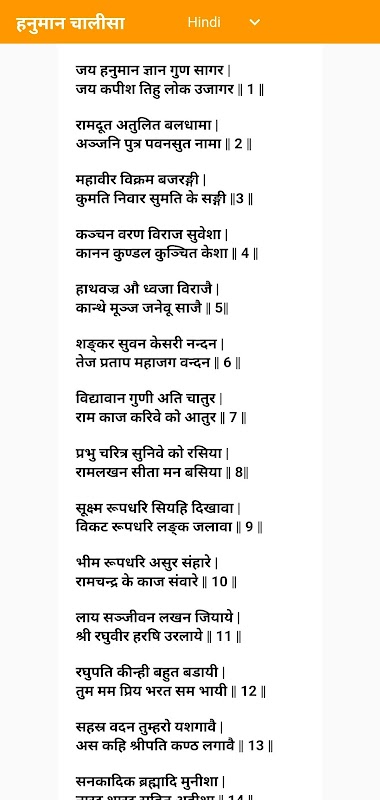 हनुमान चालीसा
Hindi
जय हनुमान ज्ञान गुण सागर |
जय कपीश तिहु लोक उजागर || 1 ||
रामदूत अतुलित बलधामा |
अञ्जनि पुत्र पवनसुत नामा || 2 ||
महावीर विक्रम बजरङ्गी |
कुमति निवार सुमति के सङ्गी ||3 ||
कञ्चन वरण विराज सुवेशा |
कानन कुण्डल कुञ्चित केशा || 4 ||
हाथवज्र औ ध्वजा विराजै |
कान्थे मूञ्ज जनेवू साजै || 5||
शङ्कर सुवन केसरी नन्दन |
तेज प्रताप महाजग वन्दन || 6 ||
विद्यावान गुणी अति चातुर |
राम काज करिवे को आतुर || 7 ||
प्रभु चरित्र सुनिवे को रसिया |
रामलखन सीता मन बसिया || 8||
सूक्ष्म रूपधरि सियहि दिखावा |
विकट रूपधरि लङ्क जलावा || 9 ||
भीम रूपधरि असुर संहारे |
रामचन्द्र के काज संवारे || 10 ||
लाय सञ्जीवन लखन जियाये |
श्री रघुवीर हरषि उरलाये || 11 ||
रघुपति कीन्ही बहुत बडायी |
तुम मम प्रिय भरत सम भायी || 12 ||
सहस्र वदन तुम्हरो यशगावै |
अस कहि श्रीपति कण्ठ लगावै || 13 ||
सनकादिक ब्रह्मादि मुनीशा |